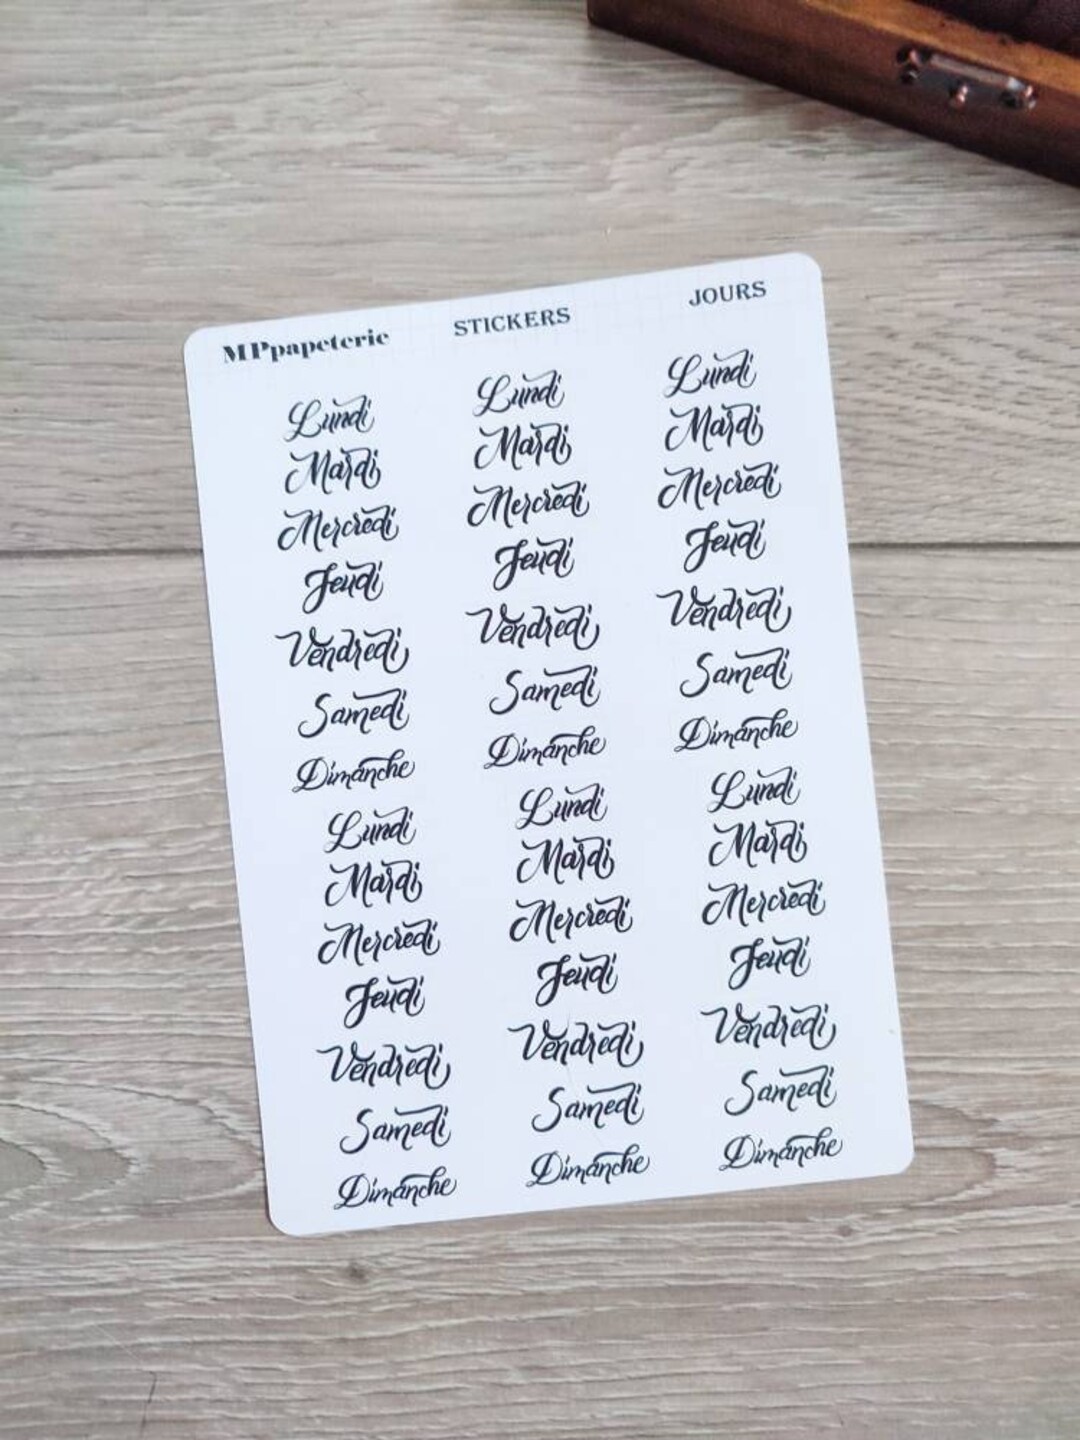 MPpapeterie STICKERS JOURS
Lundi Lundi Lundi
Mardi Mardi Mardi
Mercredi Mercredi Mercredi
Jeudi Jeudi Jeudi
Vendredi Vendredi Vendredi
Samedi Samedi Samedi
Dimanche Dimanche Dimanche
Lundi Lundi Lundi
Mardi Mardi Mardi
Mercredi Mercredi Mercredi
Jeudi Jeudi Jeudi
Vendredi Vendredi Vendredi
Samedi Samedi Samedi
Dimanche Dimanche Dimanche